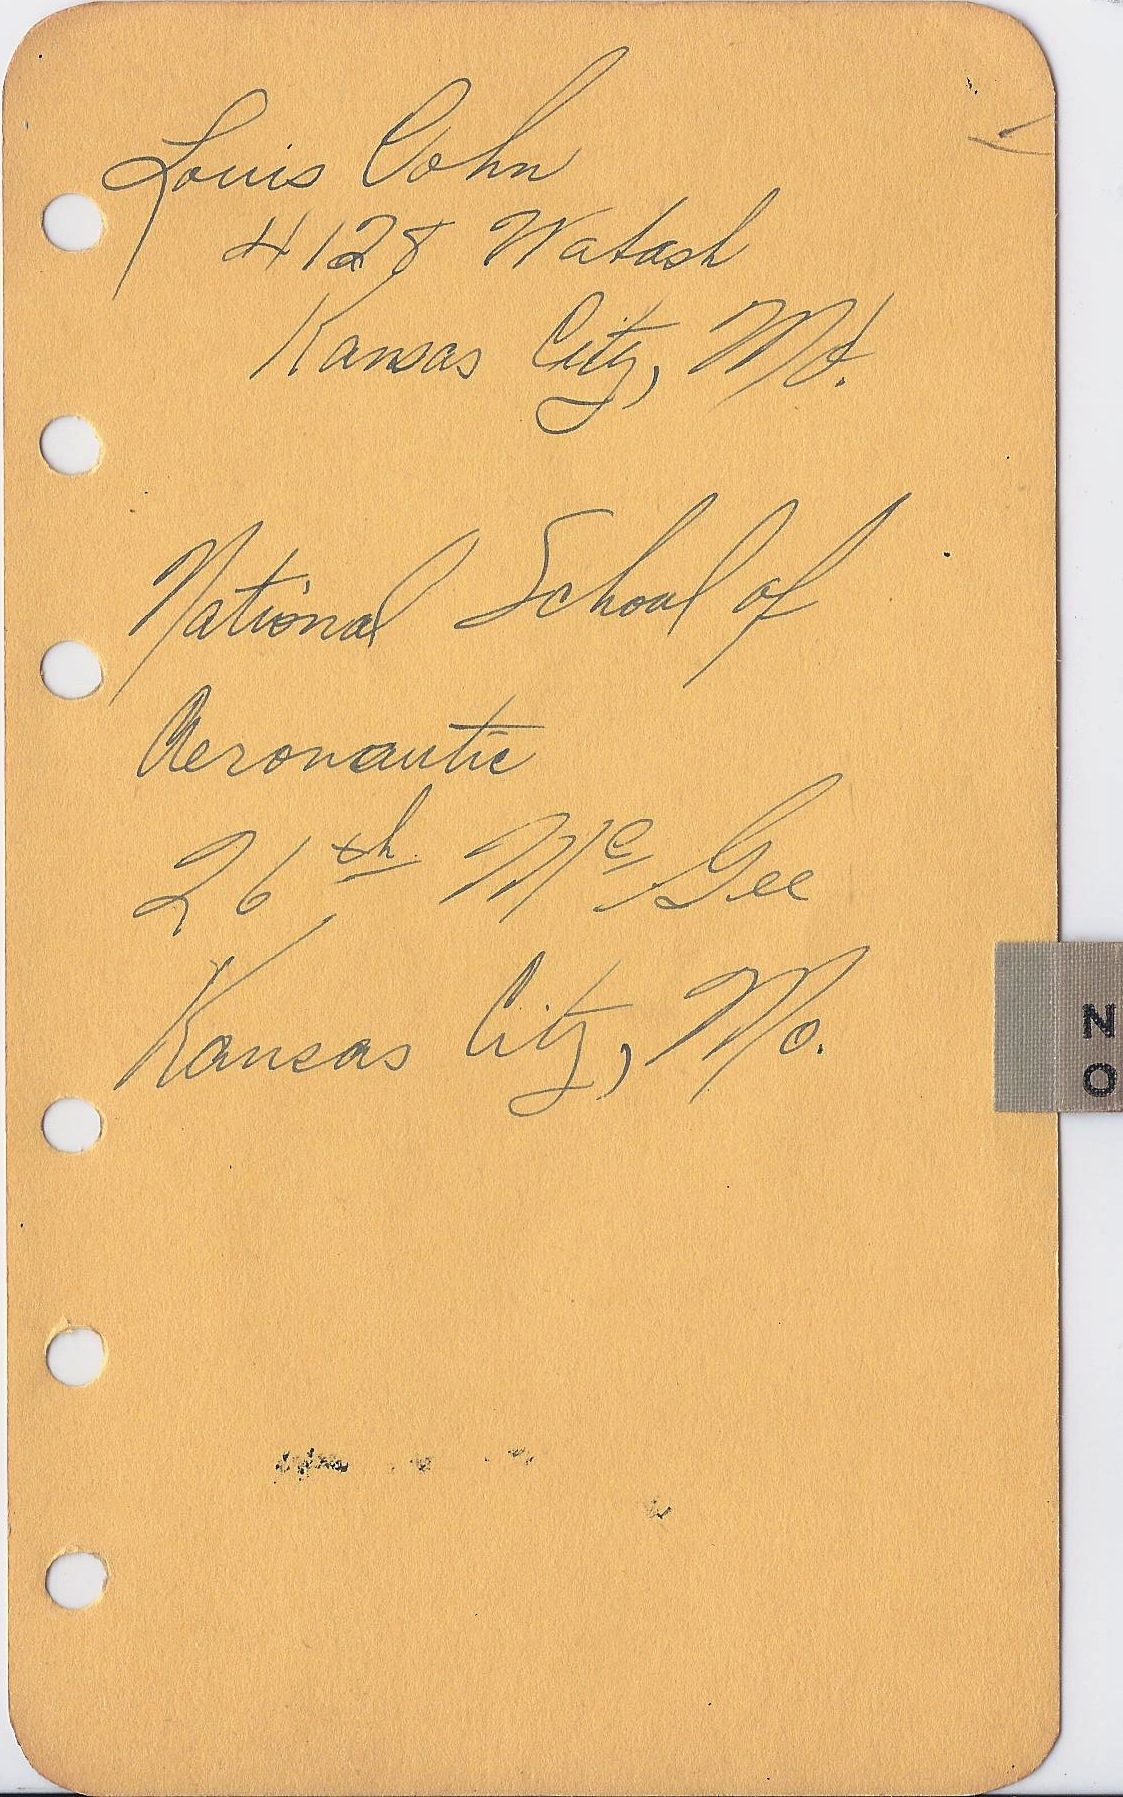 Louis Cohn
4128 Wabash
Kansas City, Mo.
National School of
Aeronautic
26th McGee
Kansas City, Mo.
N
O